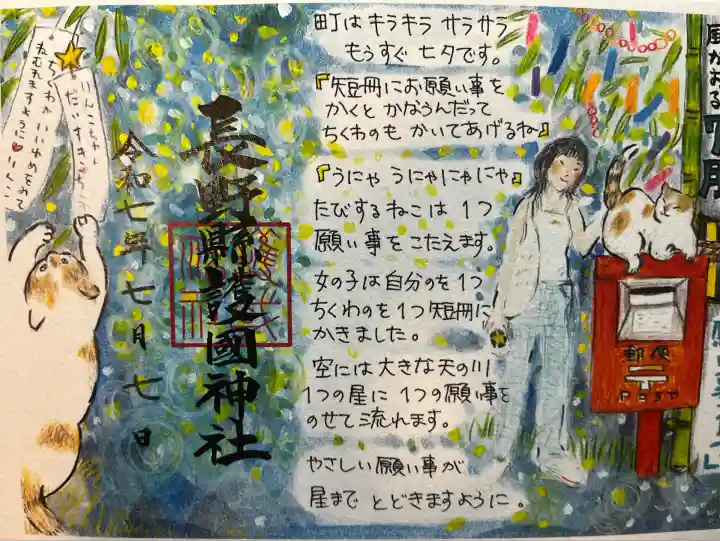 町はキラキラ サラサラ
もうすぐ 七夕です。
『短冊にお願い事を
かくと かなうんだって
ちくわのも かいてあげるね』
『うにゃ うにゃにゃにゃ』
たびするねこは 1つ
願い事をこたえます。
女の子は自分のを1つ
ちくわのを1つ短冊に
かきました。
空には大きな天の川
1つの星に 1つの願い事を
のせて流れます。
やさしい願い事が
星まで とどきますように。
長野縣護國神社
令和七年 七月 七日
りんこちゃん
だいすき
ちくわが いいゆめをみて
ねむれますように♥りんこ
郵便
〒
POST
風がおる